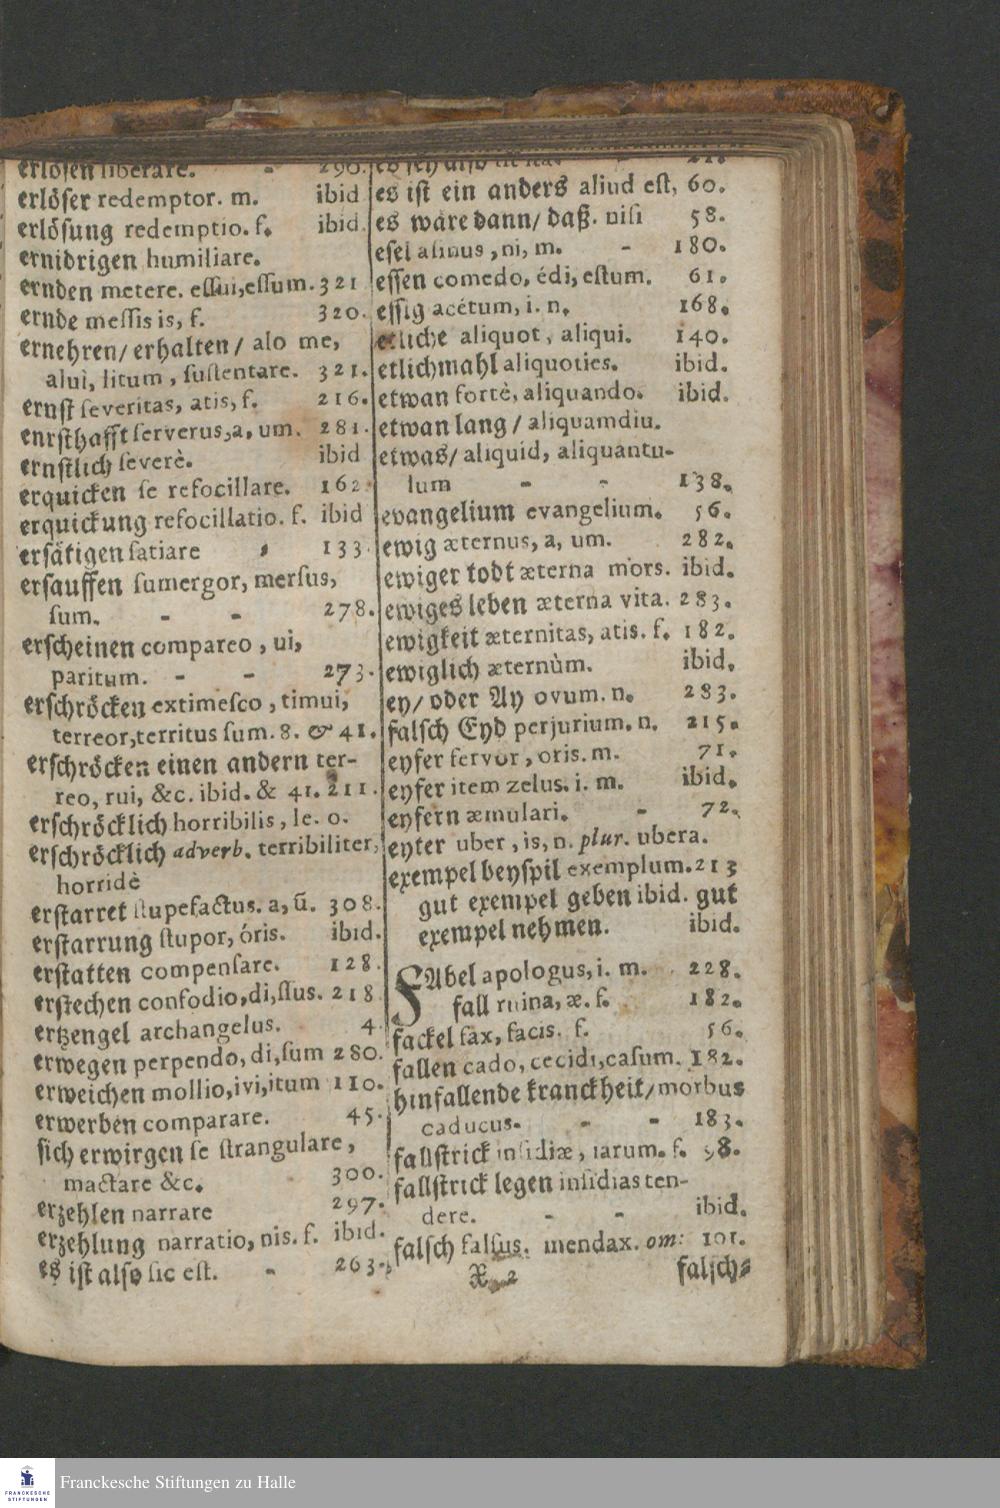 erlösen liberare. - 290.
erlöser redemptor. m. ibid
erlösung redemptio. f. ibid.
ernidrigen humiliare.
ernden metere. essui, essum. 321
ernde messis is, f. 320.
ernehren/ erhalten/ alo me,
aluì, litum, sustentare. 321.
ernst severitas, atis, f. 216.
enrsthafft serverus, a, um. 281.
ernstlich severè. ibid
erquicken se refocillare. 162.
erquickung refocillatio. f. ibid
ersätigen satiare 133.
ersauffen sumergor, mersus,
sum. - - 278.
erscheinen compareo, ui,
paritum. - - 273.
erschröcken extimesco, timui,
terreor, territus sum. 8. & 41.
erschröcken einen andern ter-
reo, rui, &c. ibid. & 41. 211.
erschröcklich horribilis, le. o.
erschröcklich adverb. terribiliter,
horridè
erstarret stupefactus. a, ũ. 308.
erstarrung stupor, óris. ibid.
erstatten compensare. 128.
erstechen confodio, di, ssus. 218.
ertzengel archangelus. 4.
erwegen perpendo, di, sum 280.
erweichen mollio, ivi, itum 110.
erwerben comparare. 45.
sich erwirgen se strangulare,
mactare &c. 300.
erzehlen narrare 297.
erzehlung narratio, nis. f. ibid.
es ist also sic est. - 263.
es sey also - 21.
es ist ein anders aliud est, 60.
es wäre dann/ daß. nisi 58.
esel asinus, ni, m. - 180.
essen comedo, édi, estum. 61.
essig acétum, i. n. 168.
etliche aliquot, aliqui. 140.
etlichmahl aliquoties. ibid.
etwan fortè, aliquando. ibid.
etwan lang / aliquamdiu.
etwas/ aliquid, aliquantu-
lum - - 138.
evangelium evangelium. 56.
ewig æternus, a, um. 282.
ewiger todt æterna mors. ibid.
ewiges leben æterna vita. 283.
ewigkeit æternitas, atis. f. 182.
ewiglich æternùm. ibid.
ey/ oder Ay ovum. n. 283.
falsch Eyd perjurium. n. 215.
eyfer fervor, oris. m. 71.
eyfer item zelus. i. m. ibid.
eyfern æmulari. - 72.
eyter uber, is, n. plur. ubera.
exempel beyspil exemplum. 213
gut exempel geben ibid. gut
exempel nehmen. ibid.
FAbel apologus, i. m. 228.
fall ruina, æ. f. 182.
fackel fax, facis. f. 56.
fallen cado, cecidi, casum. 182.
hinfallende kranckheit/ morbus
caducus. - - 183.
fallstrick insidiæ, iarum. f. 98.
fallstrick legen insidias ten-
dere. - - ibid.
falsch falsus. mendax. om: 101.
X 2 falsch-
FRANCKESCHE
STIFTUNGEN
Franckesche Stiftungen zu Halle